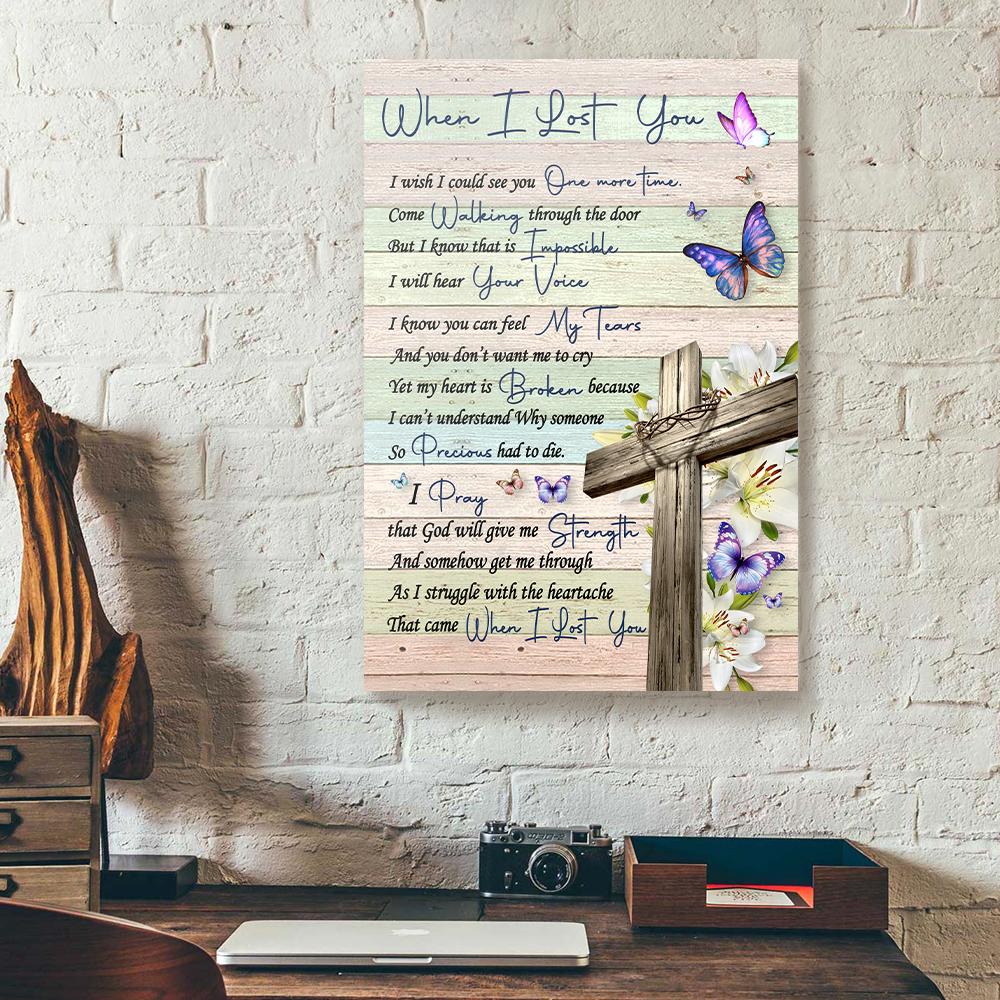 When I Lost You
I wish I could see you One more time.
Come Walking through the door
But I know that is Impossible
I will hear Your Voice
I know you can feel My Tears
And you don't want me to cry
Yet my heart is Broken because
I can't understand Why someone
So Precious had to die.
I Pray
that God will give me Strength
And somehow get me through
As I struggle with the heartache
That came When I Lost You